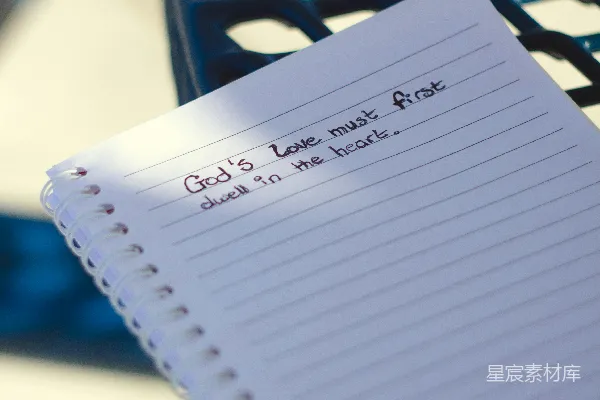 God's Love must first
dwell in the heart.
星宸素材库